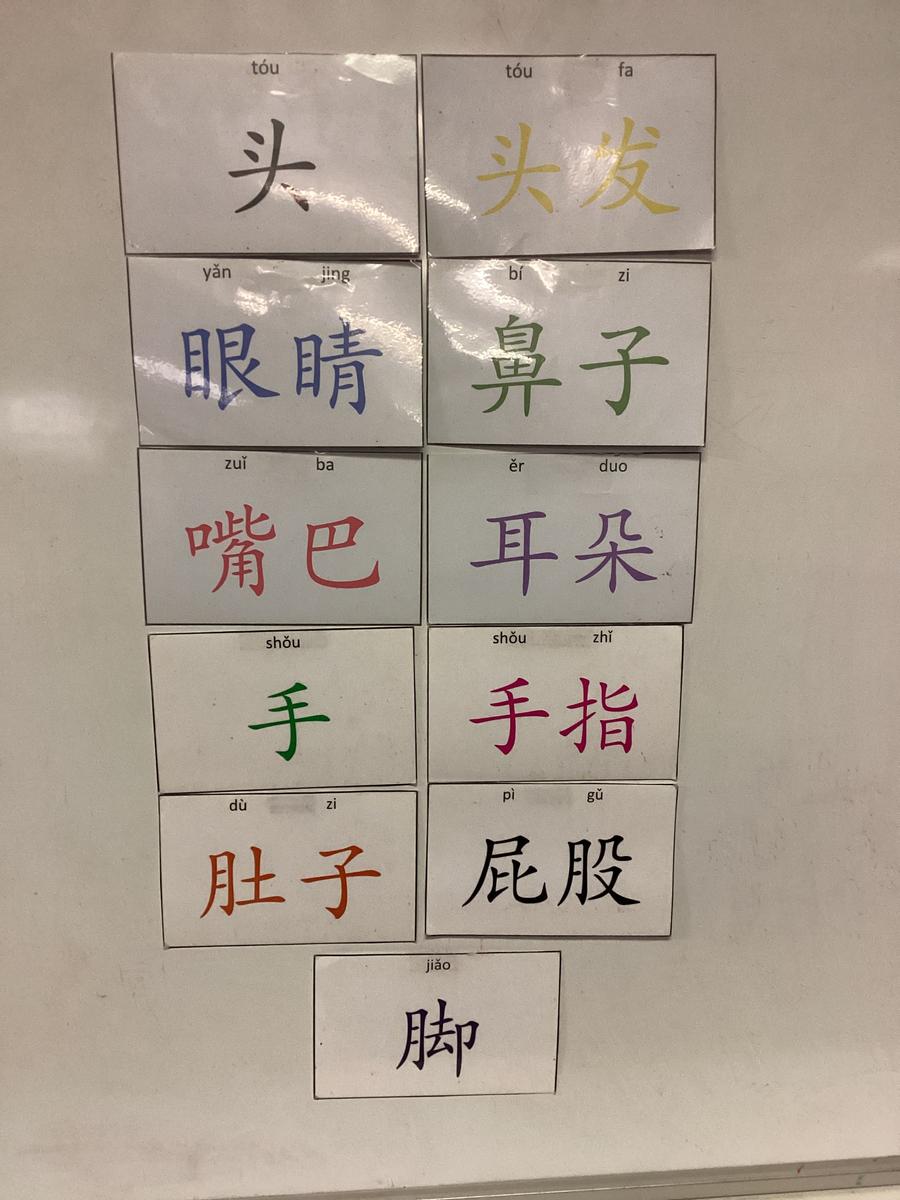 tóu
头
tóu fa
头发
yǎn jing
眼睛
bí zi
鼻子
zuǐ ba
嘴巴
ěr duo
耳朵
shǒu
手
shǒu zhǐ
手指
dù zi
肚子
pì gǔ
屁股
jiǎo
脚